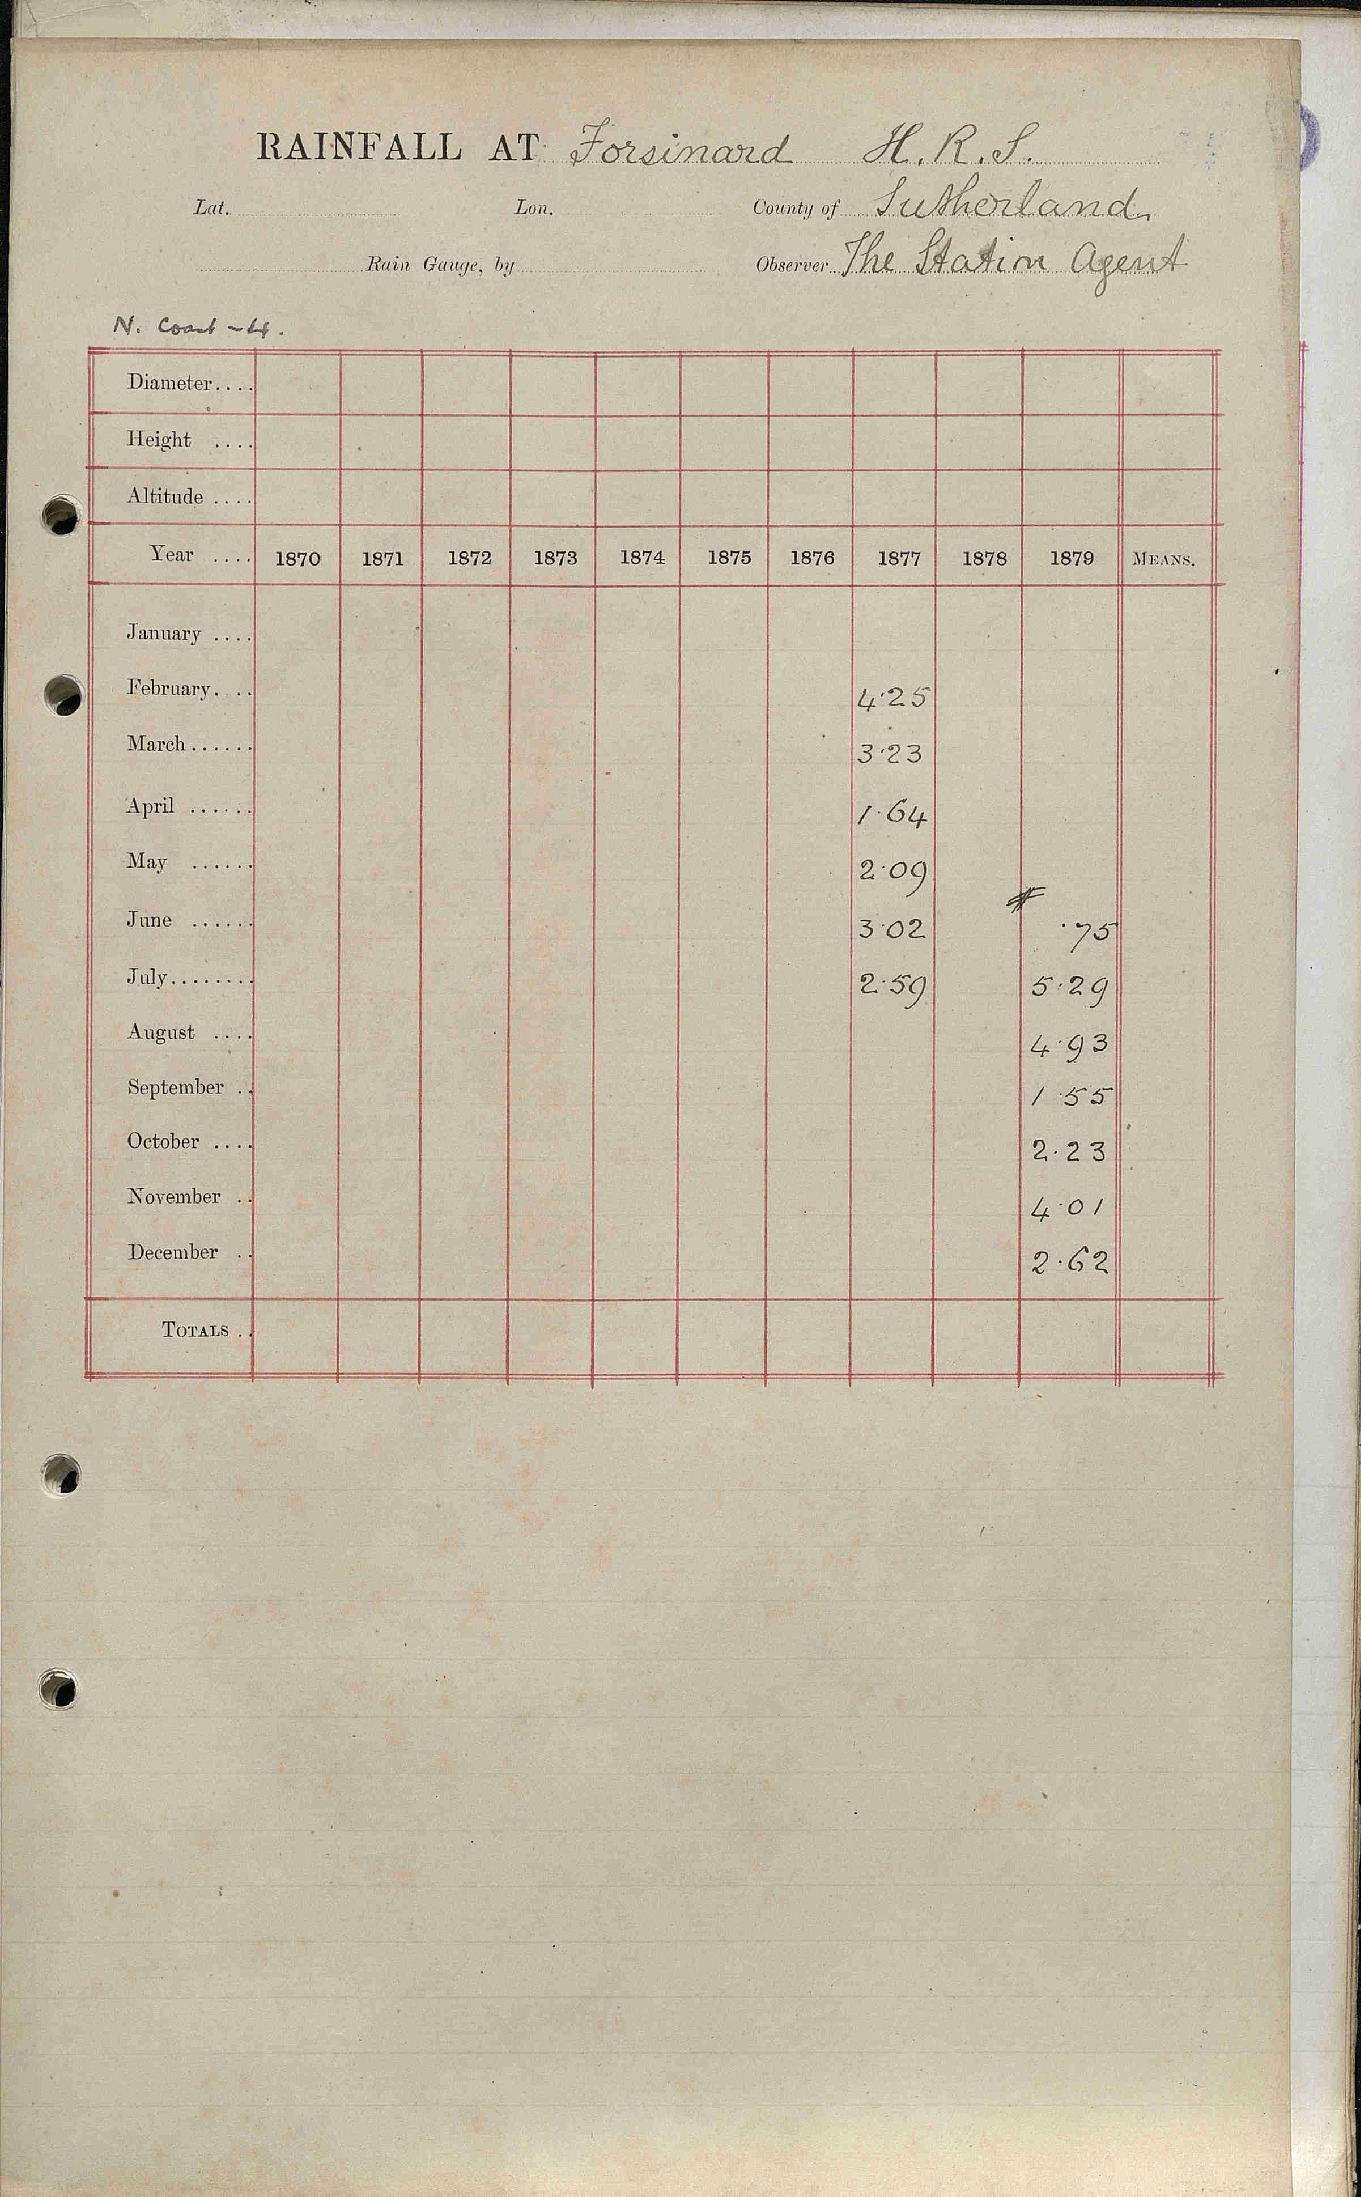 RAINFALL AT Forsinard H.R.S.
Lat. Lon. County of Sutherland.
Rain Gauge, by Observer The Station Agent
N. Coast - 4.
Diameter....
Height ....
Altitude ....
Year .... 1870 1871 1872 1873 1874 1875 1876 1877 1878 1879 MEANS.
January ....
February. .. 4.25
March...... 3.23
April ...... 1.64
May ...... 2.09
June ...... 3.02 .75
July........ 2.59 5.29
August .... 4.93
September .. 1.55
October .... 2.23
November .. 4.01
December .. 2.62
TOTALS ..